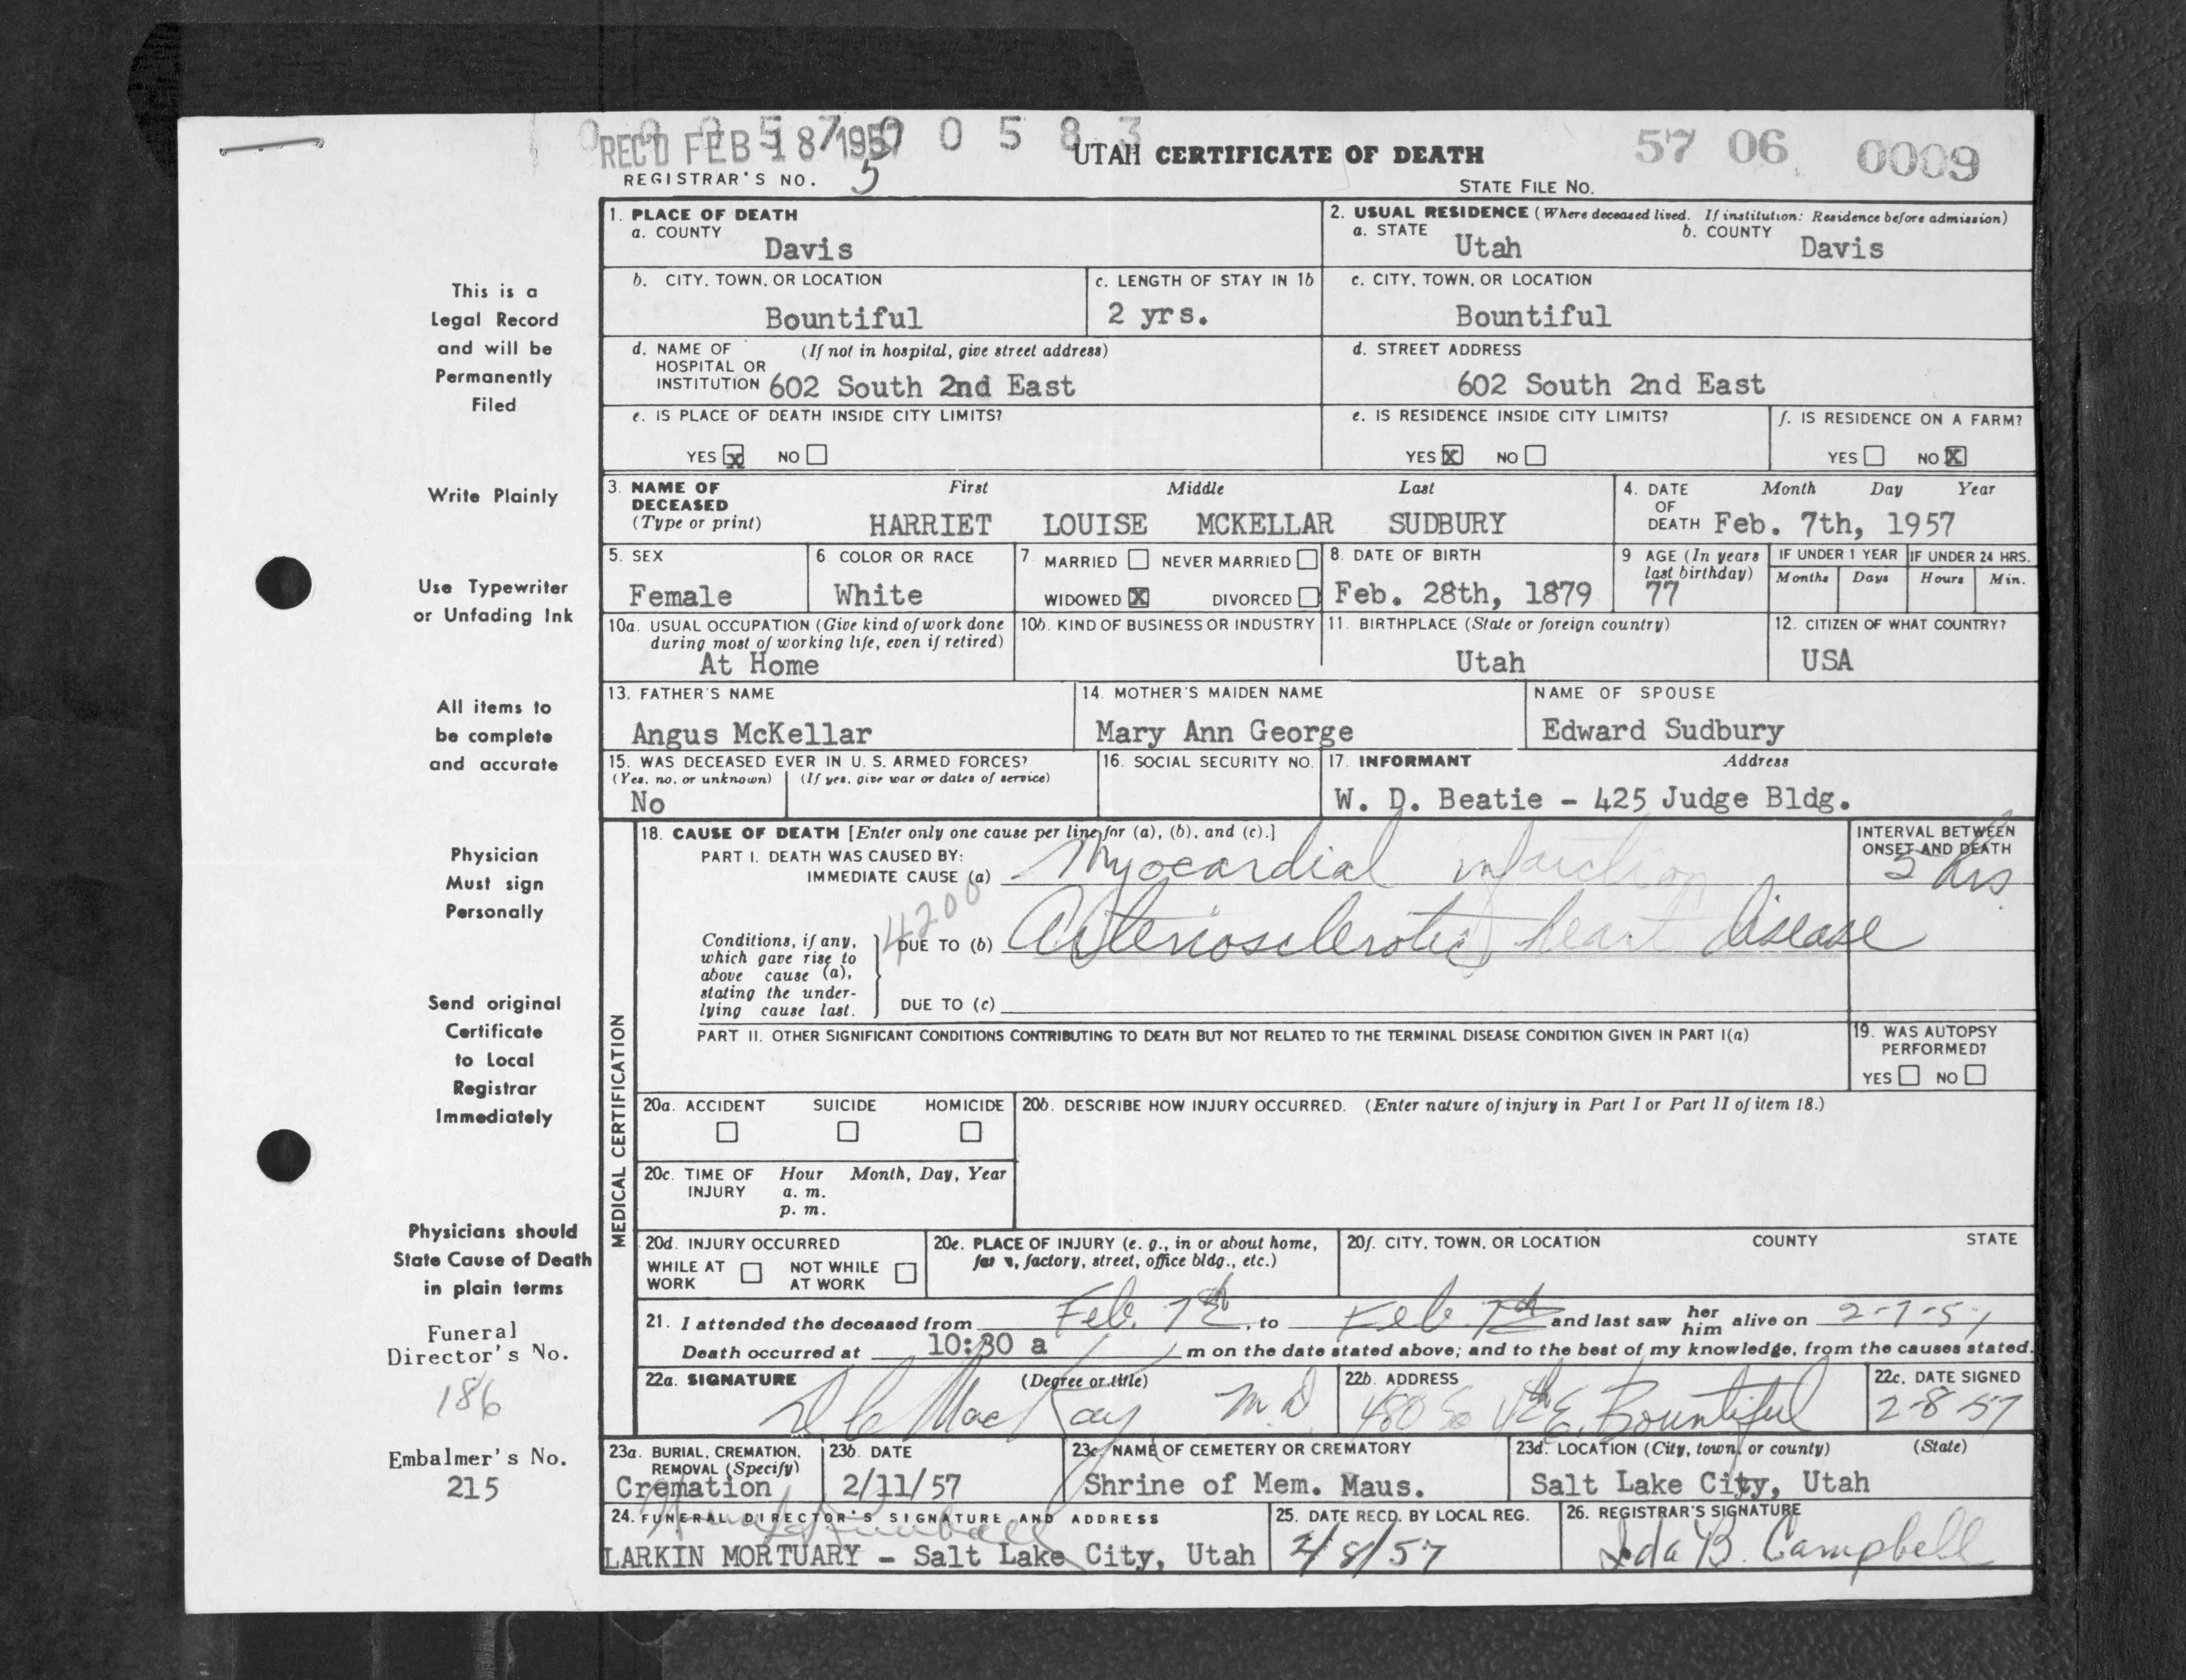 REC'D FEB 18 1957
0 0 5 8 3
UTAH CERTIFICATE OF DEATH
57 06 0009
REGISTRAR'S NO. 5
STATE FILE NO.
1. PLACE OF DEATH
a. COUNTY
Davis
2. USUAL RESIDENCE (Where deceased lived. If institution: Residence before admission)
a. STATE Utah b. COUNTY Davis
b. CITY, TOWN, OR LOCATION
Bountiful
c. LENGTH OF STAY IN 1b
2 yrs.
c. CITY, TOWN, OR LOCATION
Bountiful
d. NAME OF (If not in hospital, give street address)
HOSPITAL OR
INSTITUTION 602 South 2nd East
d. STREET ADDRESS
602 South 2nd East
e. IS PLACE OF DEATH INSIDE CITY LIMITS?
YES X NO
e. IS RESIDENCE INSIDE CITY LIMITS?
YES X NO
f. IS RESIDENCE ON A FARM?
YES NO X
3. NAME OF DECEASED (Type or print)
First Middle Last
HARRIET LOUISE MCKELLAR SUDBURY
4. DATE OF DEATH
Month Day Year
Feb. 7th, 1957
5. SEX
Female
6. COLOR OR RACE
White
7. MARRIED NEVER MARRIED
WIDOWED X DIVORCED
8. DATE OF BIRTH
Feb. 28th, 1879
9 AGE (In years last birthday)
77
IF UNDER 1 YEAR
Months Days
IF UNDER 24 HRS.
Hours Min.
10a. USUAL OCCUPATION (Give kind of work done
during most of working life, even if retired)
At Home
10b. KIND OF BUSINESS OR INDUSTRY
11. BIRTHPLACE (State or foreign country)
Utah
12. CITIZEN OF WHAT COUNTRY?
USA
13. FATHER'S NAME
Angus McKellar
14. MOTHER'S MAIDEN NAME
Mary Ann George
NAME OF SPOUSE
Edward Sudbury
15. WAS DECEASED EVER IN U. S. ARMED FORCES?
(Yes, no, or unknown) (If yes, give war or dates of service)
No
16. SOCIAL SECURITY NO.
17. INFORMANT Address
W. D. Beatie - 425 Judge Bldg.
MEDICAL CERTIFICATION
18. CAUSE OF DEATH [Enter only one cause per line for (a), (b), and (c).]
PART I. DEATH WAS CAUSED BY:
IMMEDIATE CAUSE (a) Myocardial infarction
INTERVAL BETWEEN
ONSET AND DEATH
5 hrs
4200
Conditions, if any,
which gave rise to
above cause (a),
stating the under-
lying cause last.
DUE TO (b) Arteriosclerotic heart disease
DUE TO (c)
PART II. OTHER SIGNIFICANT CONDITIONS CONTRIBUTING TO DEATH BUT NOT RELATED TO THE TERMINAL DISEASE CONDITION GIVEN IN PART I(a)
19. WAS AUTOPSY
PERFORMED?
YES NO
20a. ACCIDENT SUICIDE HOMICIDE
20b. DESCRIBE HOW INJURY OCCURRED. (Enter nature of injury in Part I or Part II of item 18.)
20c. TIME OF INJURY
Hour Month, Day, Year
a. m.
p. m.
20d. INJURY OCCURRED
WHILE AT WORK NOT WHILE AT WORK
20e. PLACE OF INJURY (e. g., in or about home,
factory, street, office bldg., etc.)
20f. CITY, TOWN, OR LOCATION COUNTY STATE
21. I attended the deceased from Feb. 7th, to Feb. 7th and last saw her him alive on 2-7-57
Death occurred at 10:30 a m on the date stated above; and to the best of my knowledge, from the causes stated.
22a. SIGNATURE (Degree or title)
D C MacKay M D
22b. ADDRESS
480 So 4th E. Bountiful
22c. DATE SIGNED
2-8-57
23a. BURIAL, CREMATION,
REMOVAL (Specify)
Cremation
23b. DATE
2/11/57
23c. NAME OF CEMETERY OR CREMATORY
Shrine of Mem. Maus.
23d. LOCATION (City, town, or county) (State)
Salt Lake City, Utah
24. FUNERAL DIRECTOR'S SIGNATURE AND ADDRESS
LARKIN MORTUARY - Salt Lake City, Utah
25. DATE RECD. BY LOCAL REG.
2/8/57
26. REGISTRAR'S SIGNATURE
Ida B. Campbell
This is a
Legal Record
and will be
Permanently
Filed
Write Plainly
Use Typewriter
or Unfading Ink
All items to
be complete
and accurate
Physician
Must sign
Personally
Send original
Certificate
to Local
Registrar
Immediately
Physicians should
State Cause of Death
in plain terms
Funeral
Director's No.
186
Embalmer's No.
215